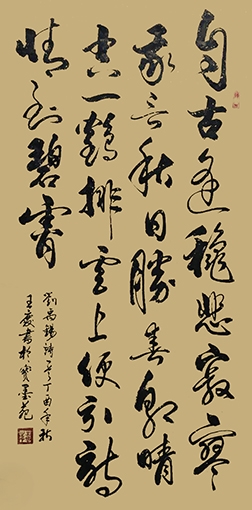 自古逢穐悲寂寥
我言秋日勝春朝晴
空一鶴排雲上便引詩
情到碧霄
劉禹錫詩一首丁酉年秋
王慶書於寶墨苑